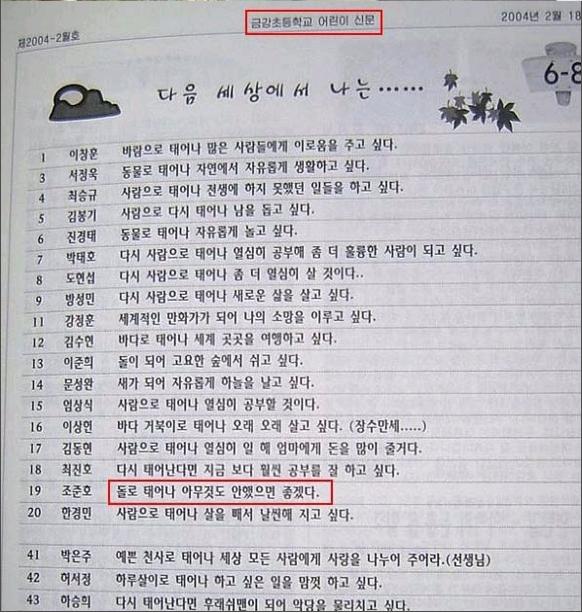 금강초등학교 어린이 신문
2004년 2월 18
제2004-2월호
6-8
다음 세상에서 나는······
1 이창훈 바람으로 태어나 많은 사람들에게 이로움을 주고 싶다.
3 서정욱 동물로 태어나 자연에서 자유롭게 생활하고 싶다.
4 최승규 사람으로 태어나 전생에 하지 못했던 일들을 하고 싶다.
5 김봉기 사람으로 다시 태어나 남을 돕고 싶다.
6 진경태 동물로 태어나 자유롭게 놀고 싶다.
7 박태호 다시 사람으로 태어나 열심히 공부해 좀 더 훌륭한 사람이 되고 싶다.
8 도현섭 다시 사람으로 태어나 좀 더 열심히 살 것이다..
9 방성민 다시 사람으로 태어나 새로운 삶을 살고 싶다.
11 강정훈 세계적인 만화가가 되어 나의 소망을 이루고 싶다.
12 김수현 바다로 태어나 세계 곳곳을 여행하고 싶다.
13 이준희 돌이 되어 고요한 숲에서 쉬고 싶다.
14 문성완 새가 되어 자유롭게 하늘을 날고 싶다.
15 임상식 사람으로 태어나 열심히 공부할 것이다.
16 이상현 바다 거북이로 태어나 오래 오래 살고 싶다. (장수만세.....)
17 김동현 사람으로 태어나 열심히 일 해 엄마에게 돈을 많이 줄거다.
18 최진호 다시 태어난다면 지금 보다 훨씬 공부를 잘 하고 싶다.
19 조준호 돌로 태어나 아무것도 안했으면 좋겠다.
20 한경민 사람으로 태어나 살을 빼서 날씬해 지고 싶다.
41 박은주 예쁜 천사로 태어나 세상 모든 사람에게 사랑을 나누어 주어라.(선생님)
42 허서정 하루살이로 태어나 하고 싶은 일을 맘껏 하고 싶다.
43 하승희 다시 태어난다면 후래쉬맨이 되어 악당을 물리치고 싶다.